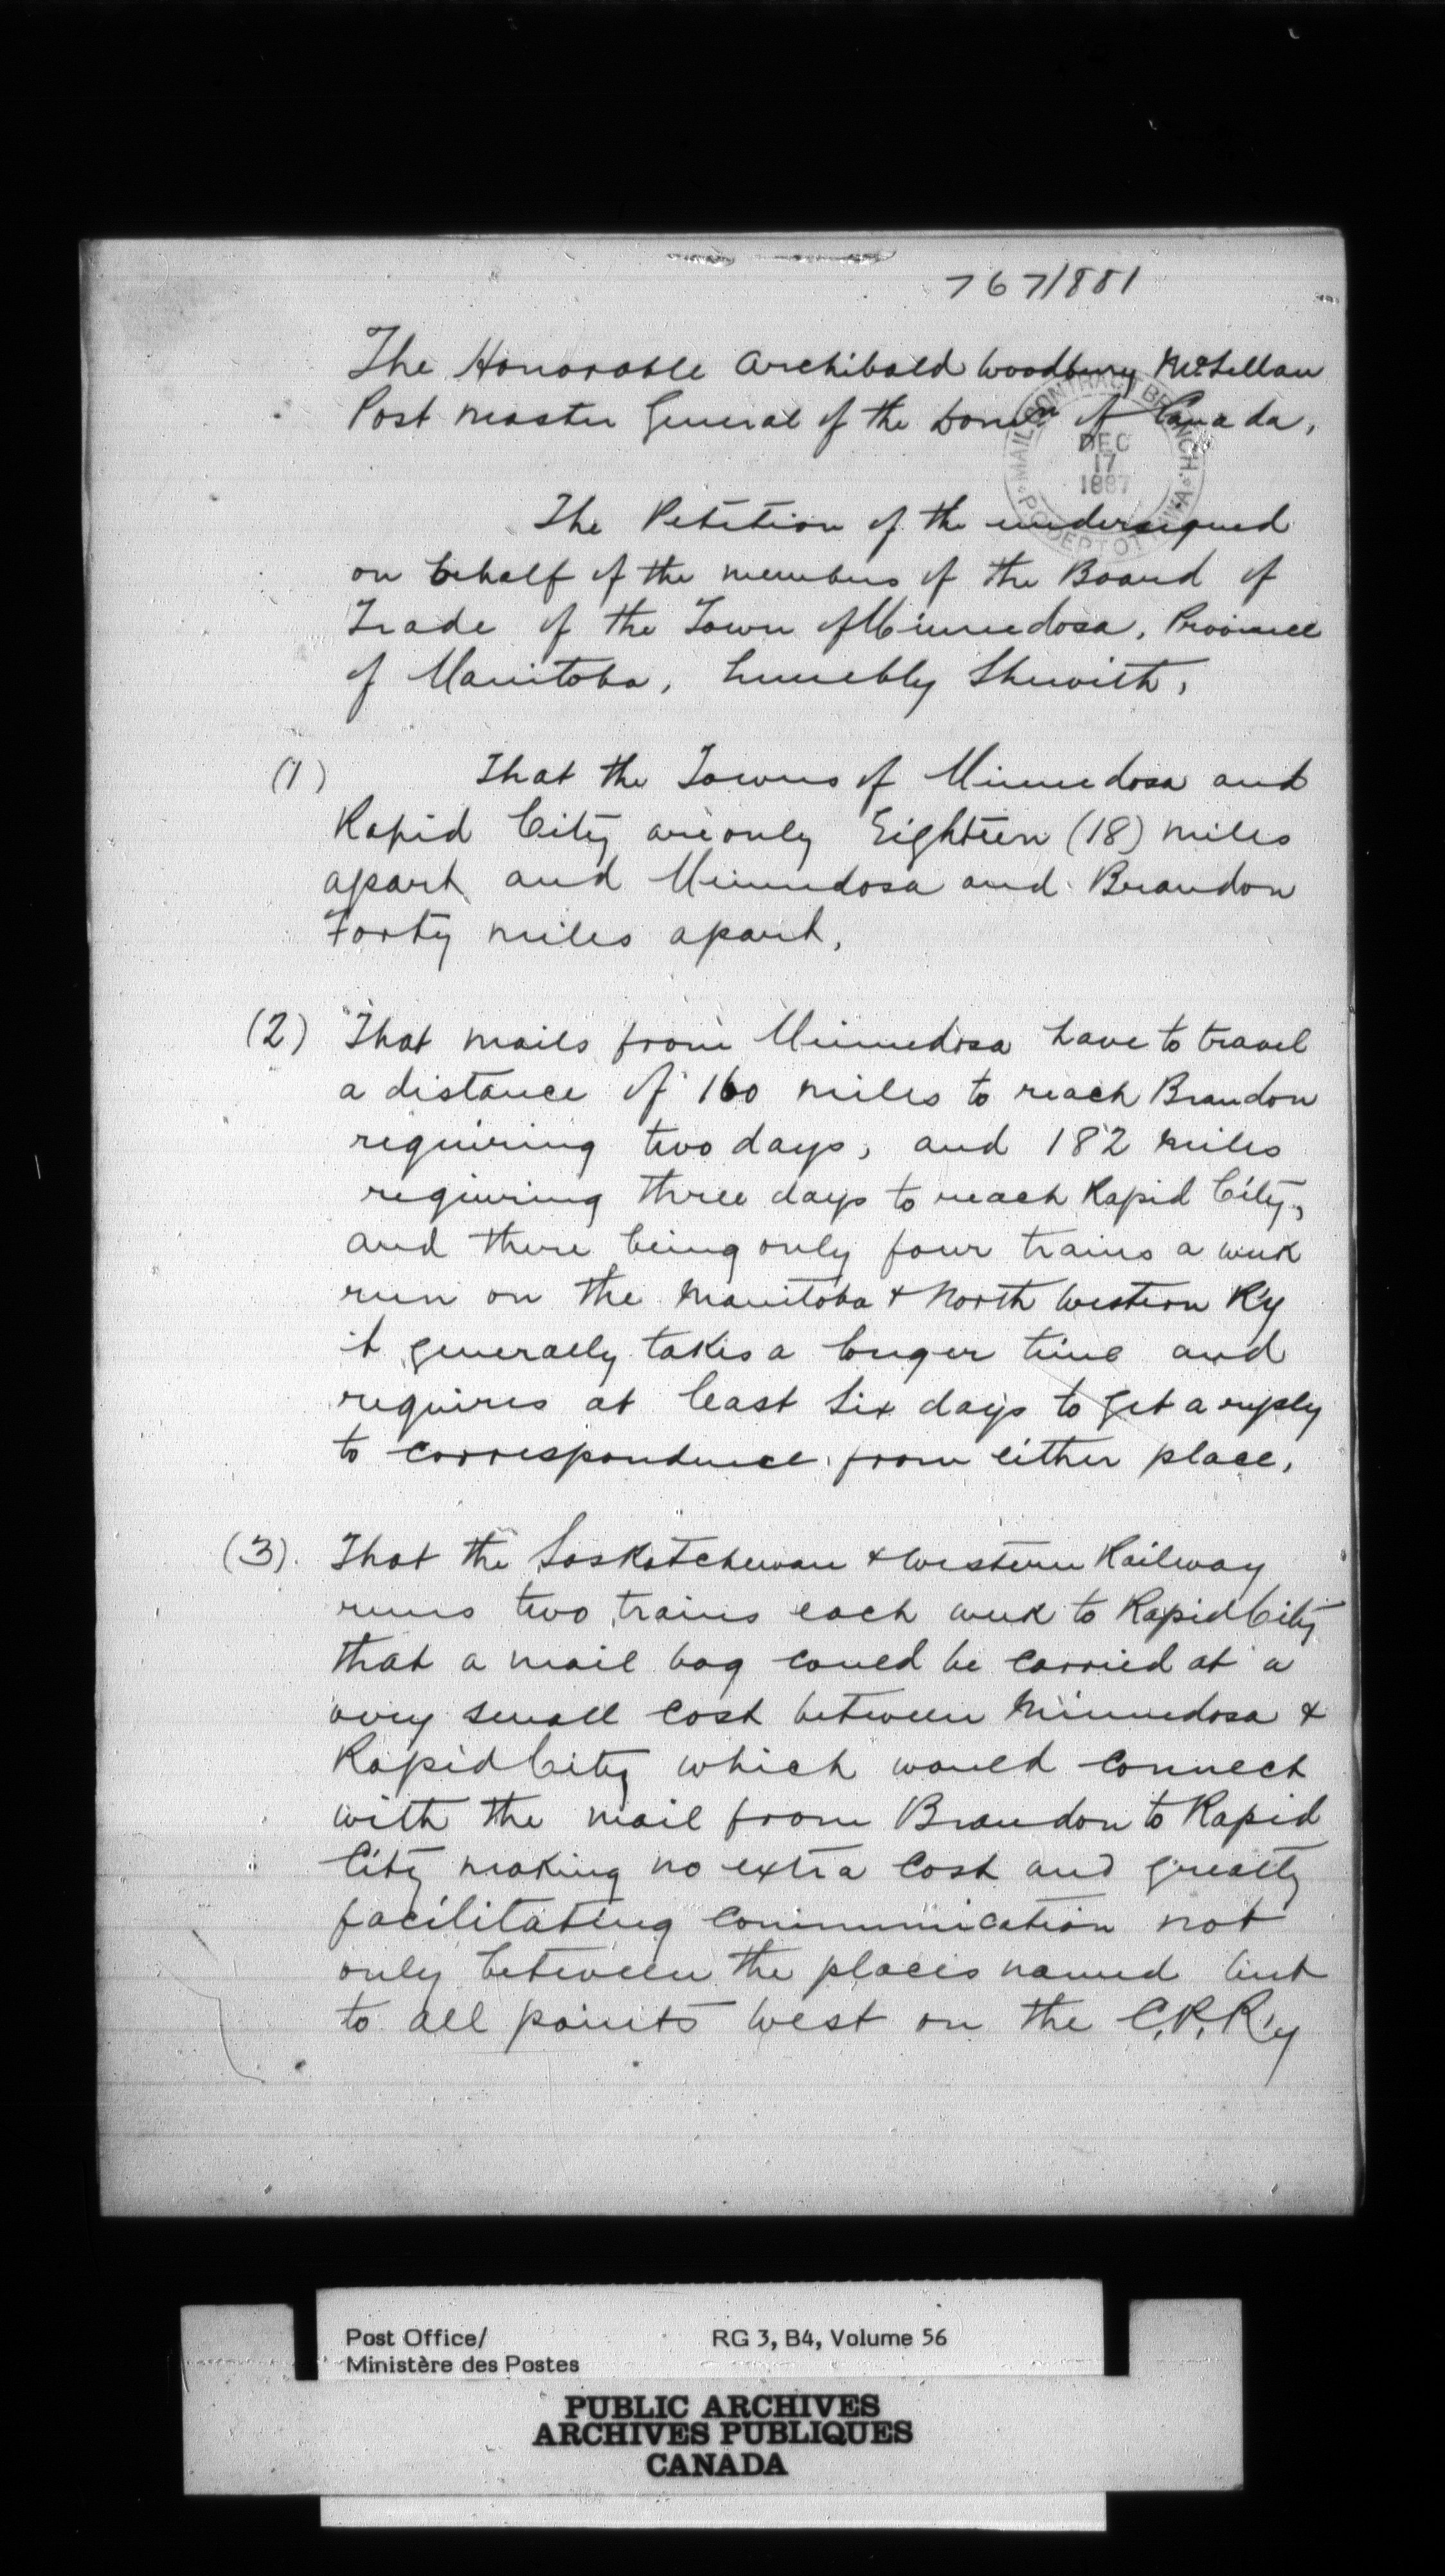 767/881
The Honorable Archibald Woodbury McLellan
Post Master General of the Domn of Canada,
MAIL CONTRACT BRANCH.
DEC
17
1887
P.O. DEPT OTTAWA
The Petition of the undersigned
on behalf of the members of the Board of
Trade of the Town of Minnedosa, Province
of Manitoba, humbly Shewith,
(1) That the Towns of Minnedosa and
Rapid City are only Eighteen (18) miles
apart and Minnedosa and Brandon
Forty miles apart,
(2) That mails from Minnedosa have to travel
a distance of 160 miles to reach Brandon
requiring two days, and 182 miles
requiring three days to reach Rapid City,
and there being only four trains a week
run on the Manitoba & North Western R'y
it generally takes a longer time and
requires at least Six days to get a reply
to correspondence from either place,
(3). That the Saskatchewan & Western Railway
runs two trains each week to Rapid City
that a mail bag could be carried at a
very small cost between Minnedosa &
Rapid City which would connect
with the mail from Brandon to Rapid
City making no extra cost and greatly
facilitating communication not
only between the places named but
to all points West on the C.P.R'y
Post Office/
Ministère des Postes
RG 3, B4, Volume 56
PUBLIC ARCHIVES
ARCHIVES PUBLIQUES
CANADA